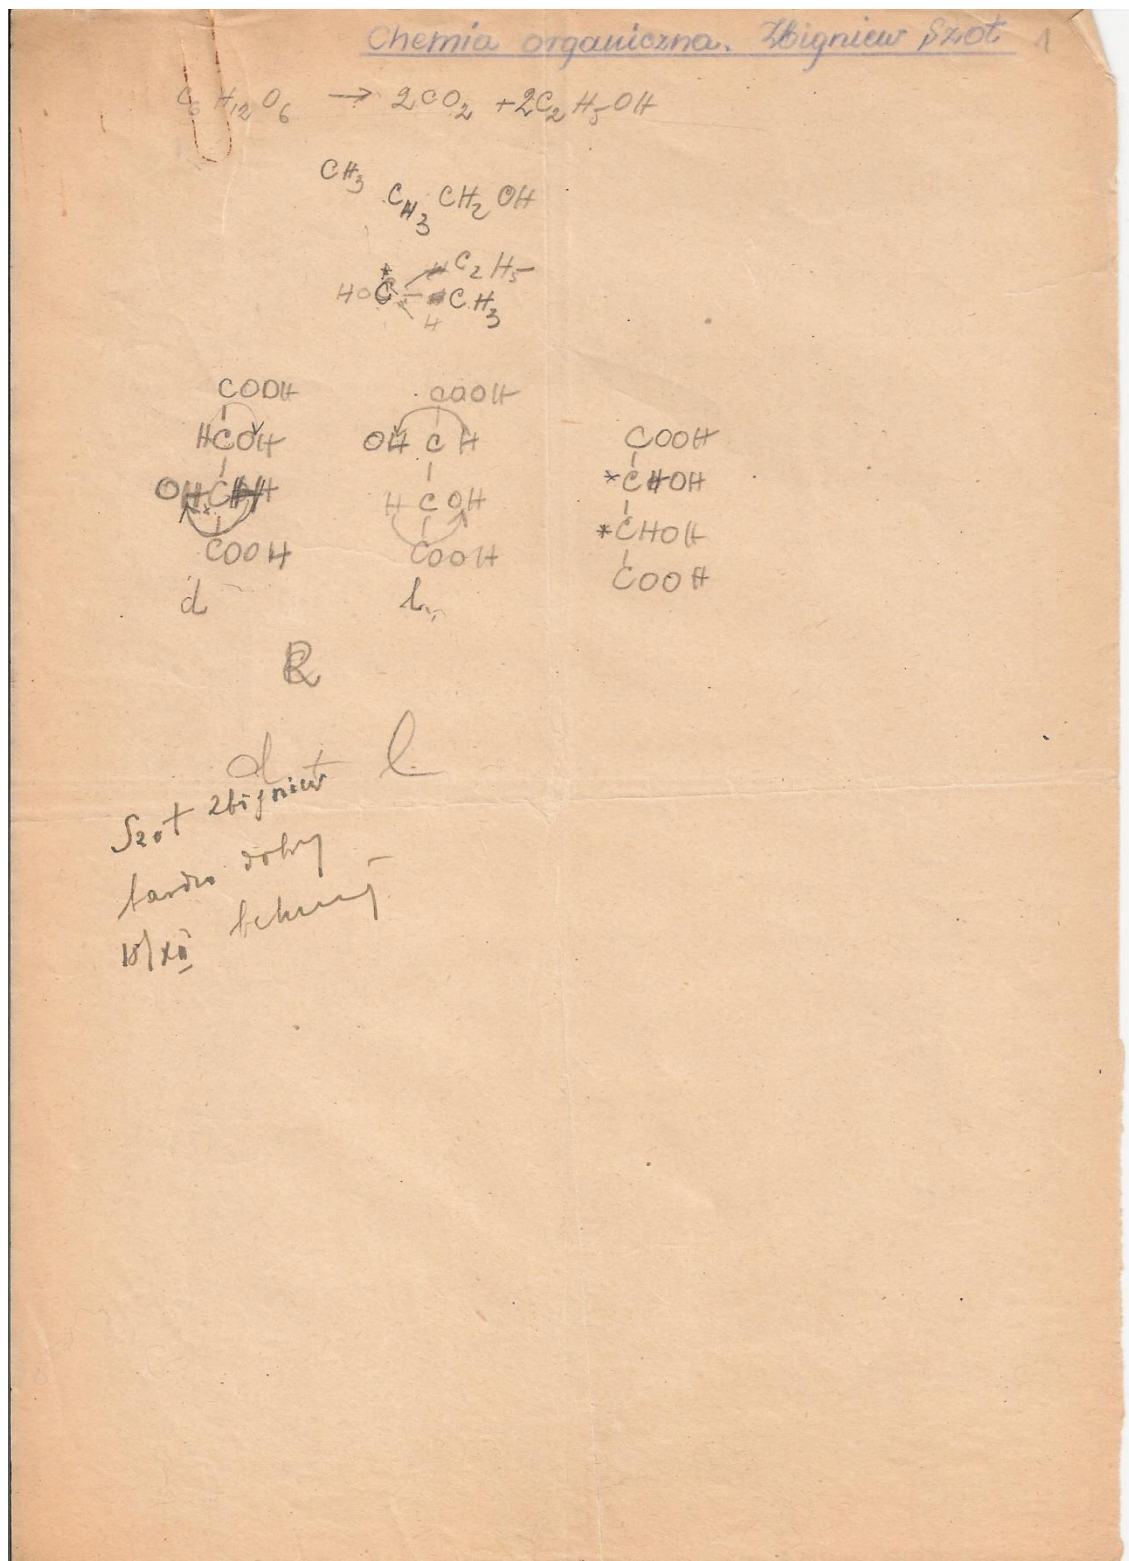 Chemia organiczna. Zbigniew Szot 1
C6 H12 O6 → 2CO2 + 2C2 H5 OH
CH3
CH3 CH2 OH
* C2 H5
HO C CH3
H
COOH COOH
HCOH OH C H COOH
OH C H H C OH *CHOH
COOH COOH *CHOH
COOH
d l
d + l
Szot Zbigniew
bardzo dobry